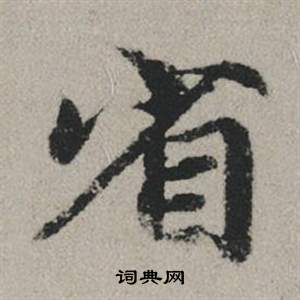 省
词典网